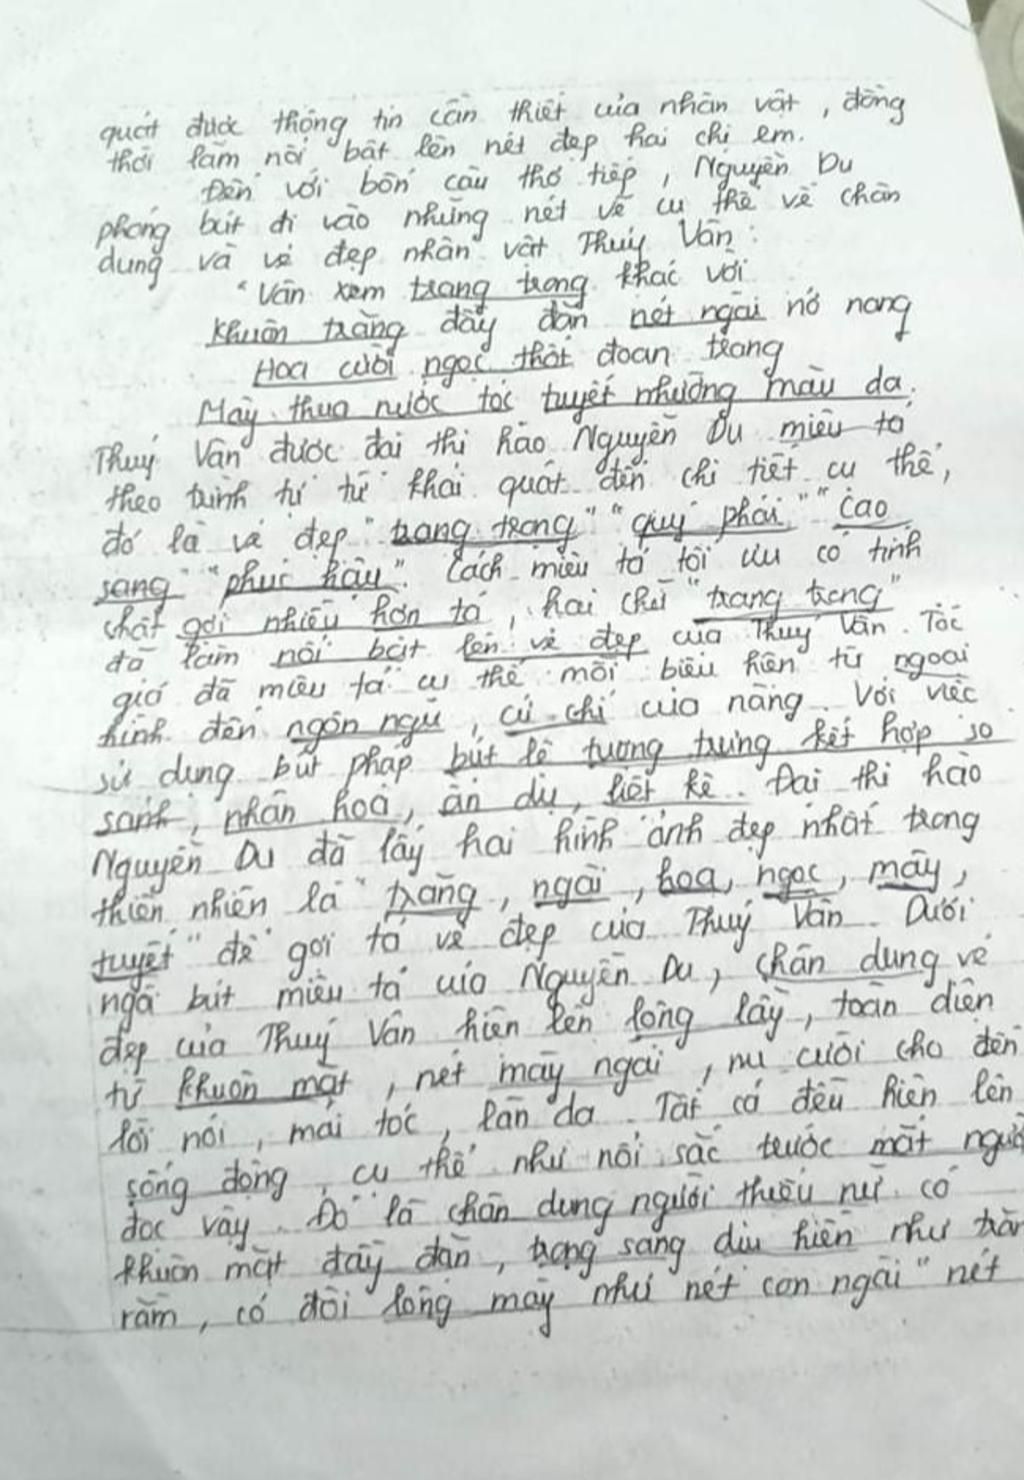 quát được thông tin cần thiết của nhân vật, đồng
thời làm nổi bật lên nét đẹp hai chị em.
Đến với bốn câu thơ tiếp, Nguyễn Du
phóng bút đi vào những nét vẽ cụ thể về chân
dung và vẻ đẹp nhân vật Thuý Vân:
"Vân xem trang trọng khác vời
Khuôn trăng đầy đặn nét ngài nở nang
Hoa cười ngọc thốt đoan trang
Mây thua nước tóc tuyết nhường màu da.
Thuý Vân được đại thi hào Nguyễn Du miêu tả
theo trình tự từ khái quát đến chi tiết cụ thể,
đó là vẻ đẹp "trang trọng" "quý phái" "cao
sang" "phúc hậu". Cách miêu tả tối ưu có tính
chất gợi nhiều hơn tả, hai chữ "trang trọng"
đã làm nổi bật lên vẻ đẹp của Thuý Vân. Tác
giả đã miêu tả cụ thể mỗi biểu hiện từ ngoại
hình đến ngôn ngữ, cử chỉ của nàng. Với việc
sử dụng bút pháp bút lệ tượng trưng kết hợp so
sánh, nhân hoá, ẩn dụ, liệt kê. Đại thi hào
Nguyễn Du đã lấy hai hình ảnh đẹp nhất trong
thiên nhiên là "trăng, ngài, hoa, ngọc, mây,
tuyết" để gợi tả vẻ đẹp của Thuý Vân. Dưới
ngã bút miêu tả của Nguyễn Du, chân dung vẻ
đẹp của Thuý Vân hiện lên lộng lẫy, toàn diện
từ khuôn mặt, nét mày ngài, nụ cười cho đến
lời nói, mái tóc, làn da. Tất cả đều hiện lên
sống động, cụ thể như nổi sắc trước mắt người
đọc vậy. Đó là chân dung người thiếu nữ có
khuôn mặt đầy đặn, trạng sáng dịu hiền như trăn
rằm, có đôi lông mày như nét con ngài "nét